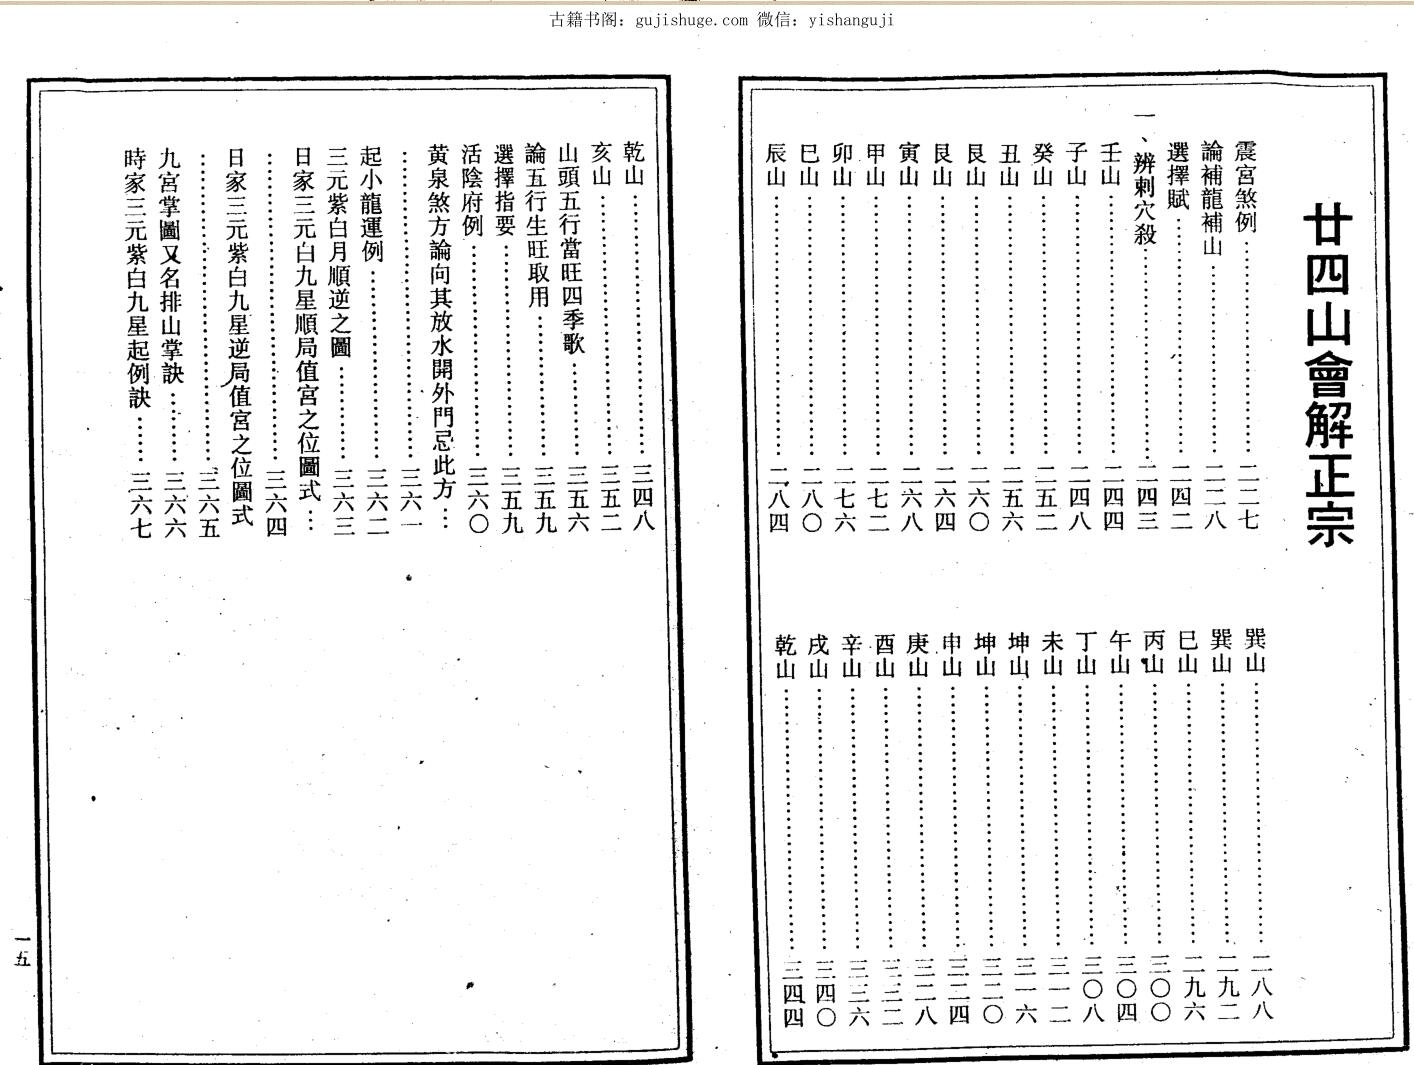 古籍书阁：gujishuge.com 微信：yishanguji
廿四山會解正宗
震宮煞例⋯⋯二二七
論補龍補山⋯⋯二二八
選擇賦⋯⋯二四二
一、辨刺穴殺⋯⋯二四三
壬山⋯⋯二四四
子山⋯⋯二四八
癸山⋯⋯二五二
丑山⋯⋯二五六
艮山⋯⋯二六〇
艮山⋯⋯二六四
寅山⋯⋯二六八
甲山⋯⋯二七二
卯山⋯⋯二七六
巳山⋯⋯二八〇
辰山⋯⋯二八四
巽山⋯⋯二八八
巽山⋯⋯二九二
巳山⋯⋯二九六
丙山⋯⋯三〇〇
午山⋯⋯三〇四
丁山⋯⋯三〇八
未山⋯⋯三一二
坤山⋯⋯三一六
坤山⋯⋯三二〇
申山⋯⋯三二四
庚山⋯⋯三二八
酉山⋯⋯三三二
辛山⋯⋯三三六
戌山⋯⋯三四〇
乾山⋯⋯三四四
乾山⋯⋯三四八
亥山⋯⋯三五二
山頭五行當旺四季歌⋯⋯三五六
論五行生旺取用⋯⋯三五九
選擇指要⋯⋯三五九
活陰府例⋯⋯三六〇
黃泉煞方論向其放水開外門忌此方⋯
⋯⋯三六一
起小龍運例⋯⋯三六二
三元紫白月順逆之圖⋯⋯三六三
日家三元白九星順局值宮之位圖式⋯
⋯⋯三六四
日家三元紫白九星逆局值宮之位圖式
⋯⋯三六五
九宮掌圖又名排山掌訣⋯⋯三六六
時家三元紫白九星起例訣⋯⋯三六七
一五